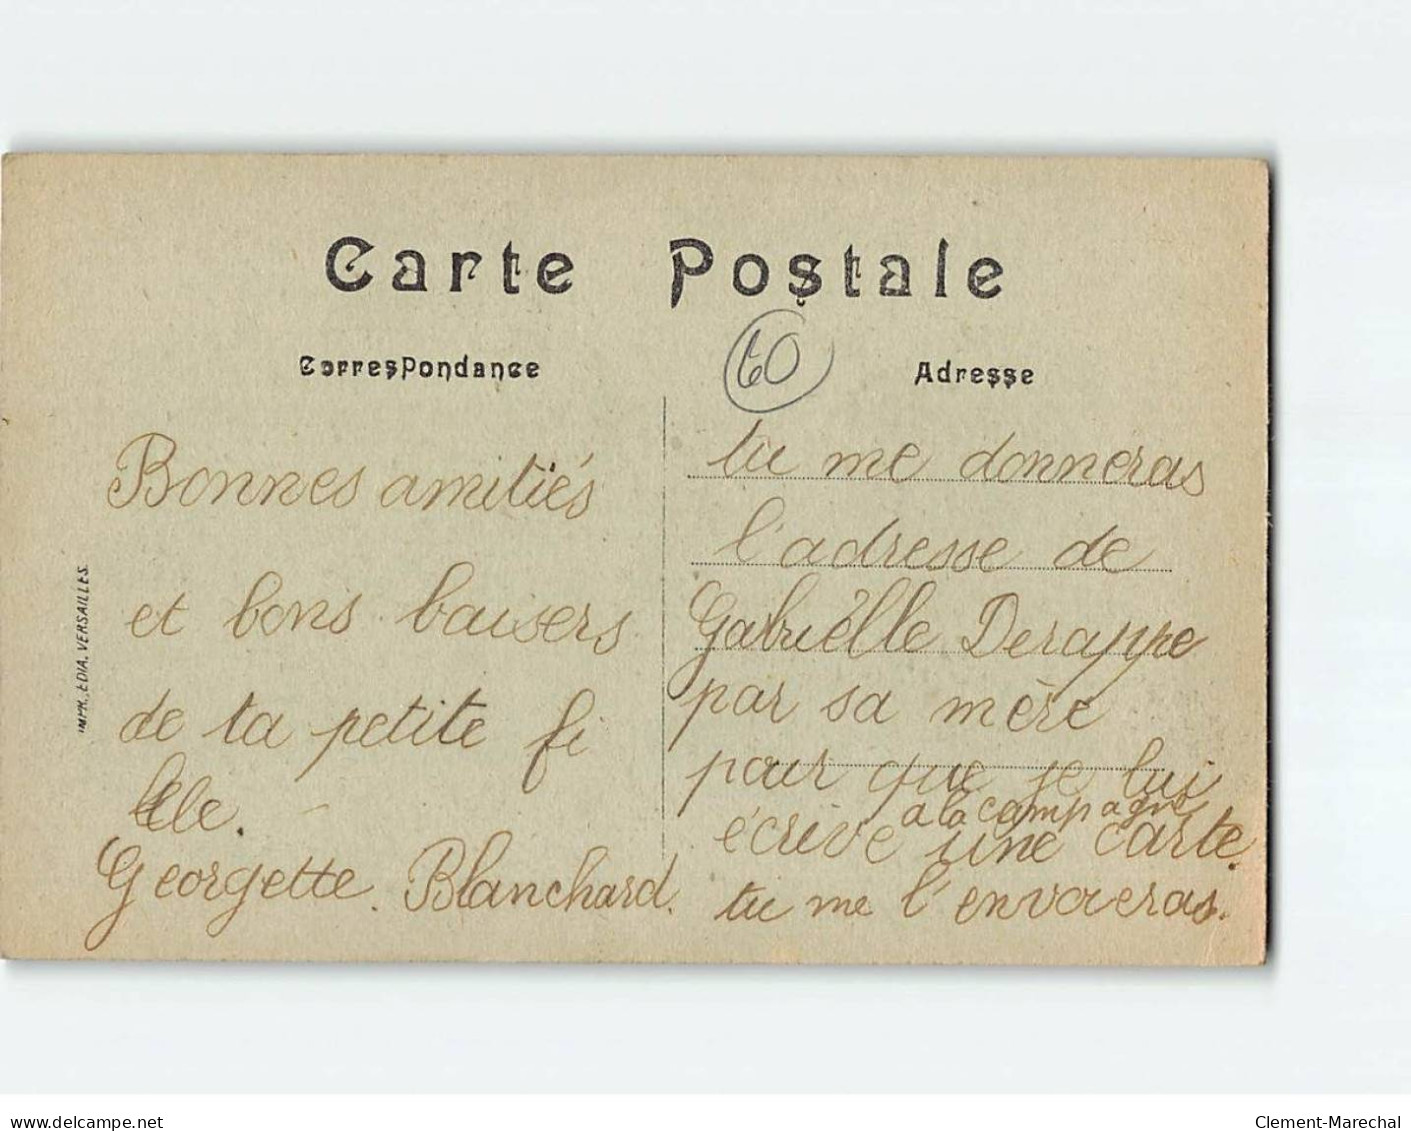 Carte Postale
Correspondance
60
Adresse
Bonnes amitiés
et bons baisers
de ta petite fi
lle.
Georgette. Blanchard.
IMPR. EDIA. VERSAILLES.
tu me donneras
l'adresse de
Gabriëlle Derappe
par sa mère
pour que je lui
a la compagne
écrive une carte.
tu me l'envoieras.
www.delcampe.net
Clement-Marechal